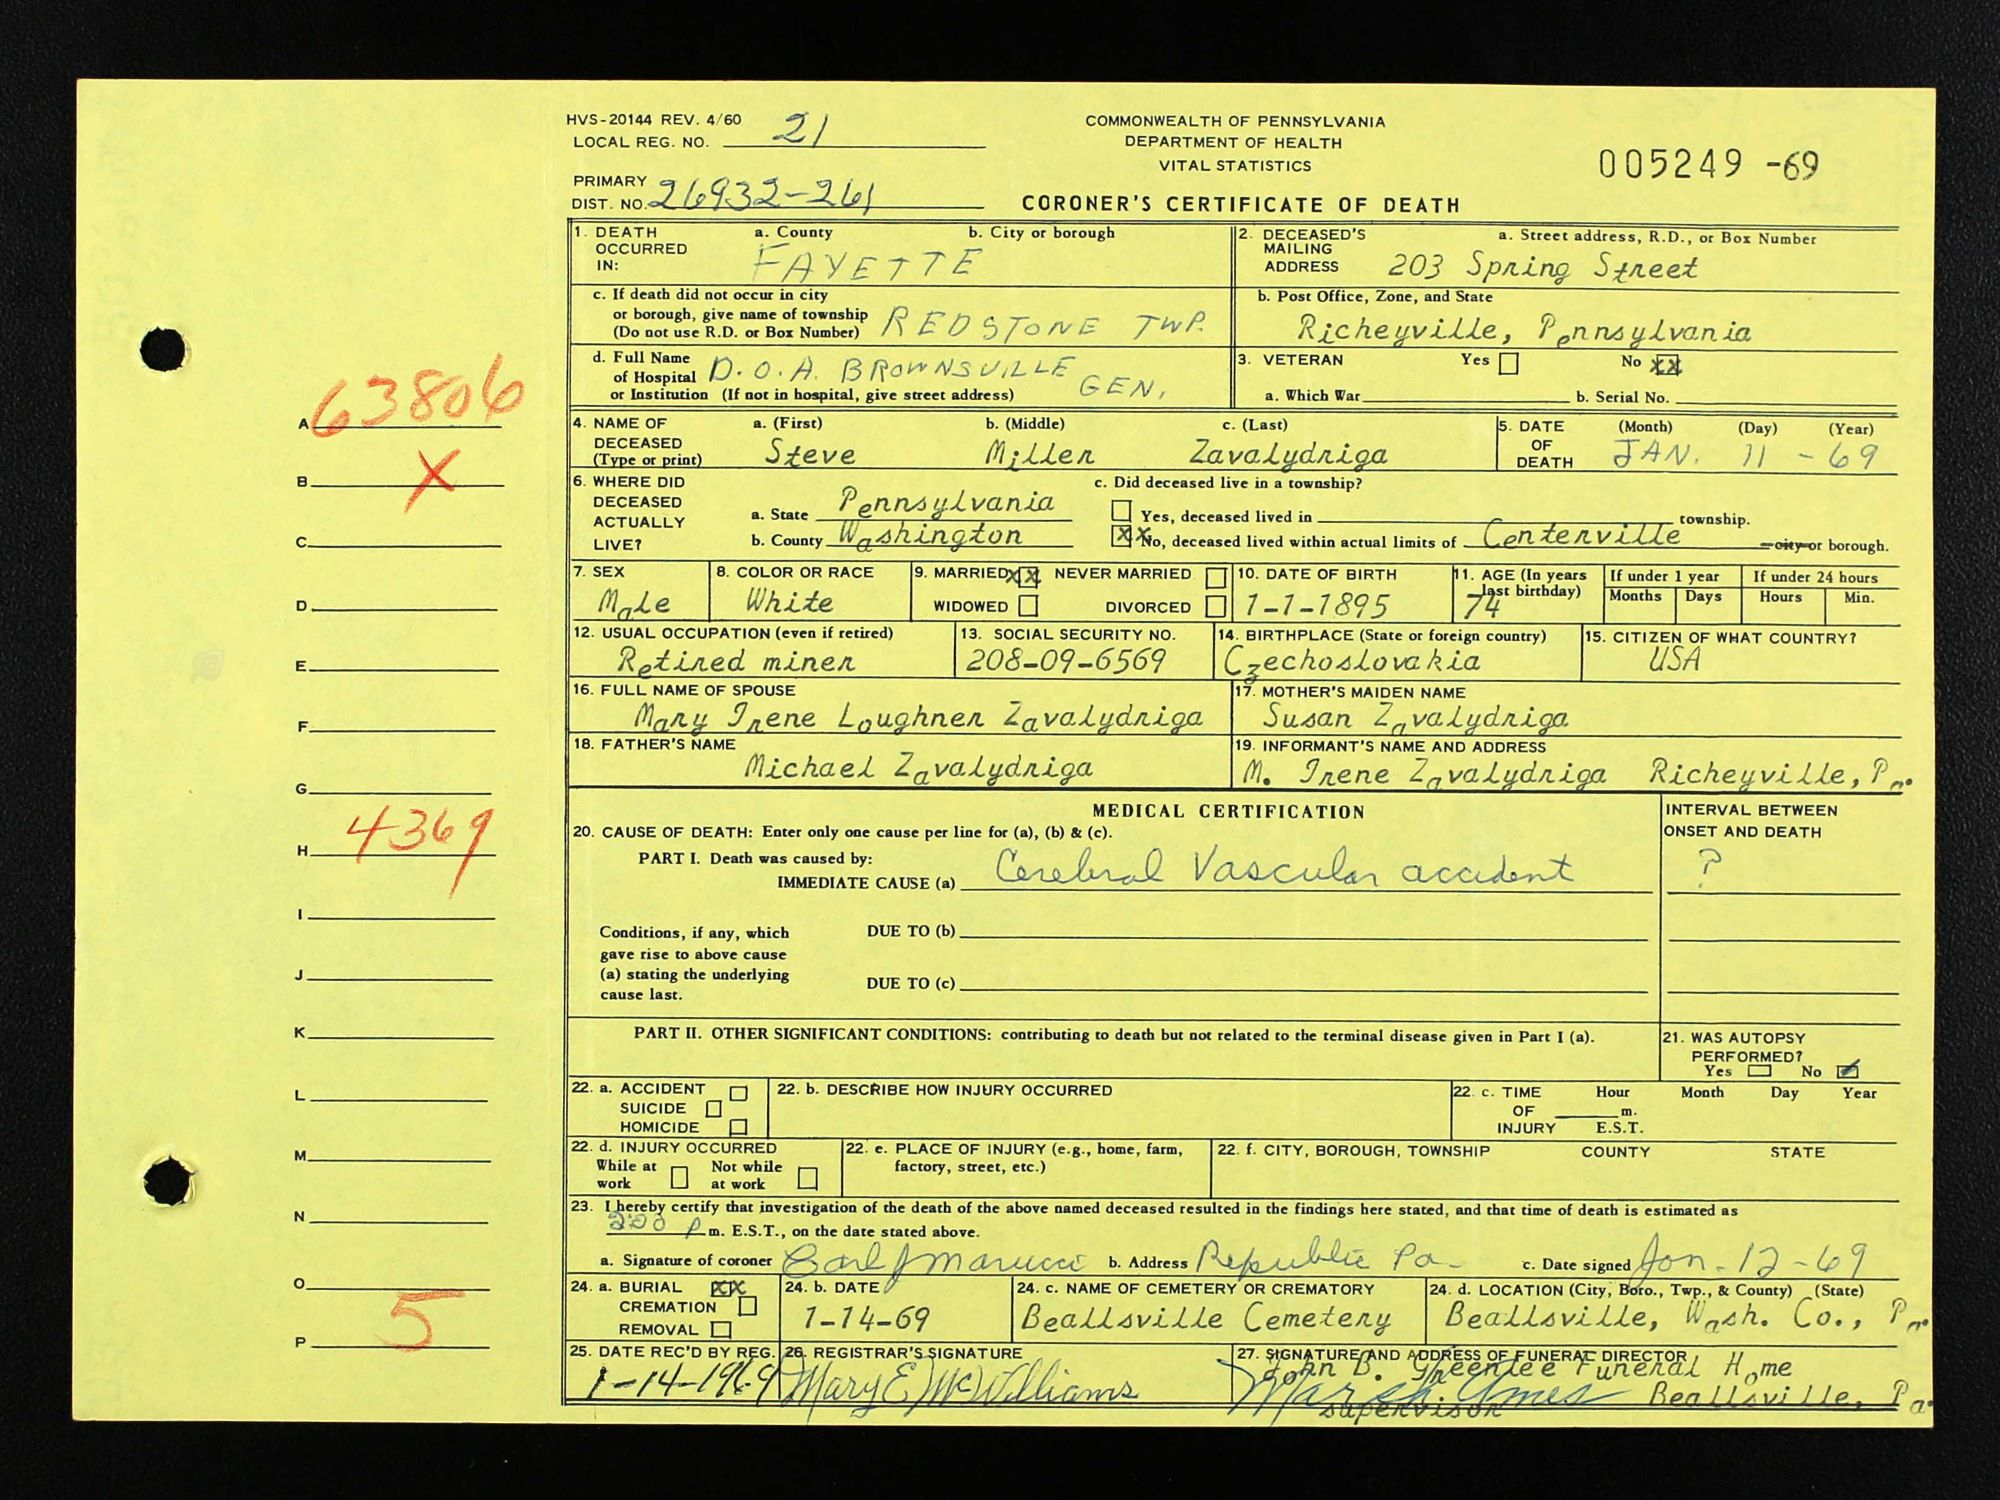 HVS-20144 REV. 4/60
LOCAL REG. NO. 21
PRIMARY
DIST. NO. 26932-261
COMMONWEALTH OF PENNSYLVANIA
DEPARTMENT OF HEALTH
VITAL STATISTICS
CORONER'S CERTIFICATE OF DEATH
005249 -69
1. DEATH OCCURRED IN: a. County FAYETTE b. City or borough
2. DECEASED'S MAILING ADDRESS a. Street address, R.D., or Box Number 203 Spring Street
c. If death did not occur in city or borough, give name of township (Do not use R.D. or Box Number) REDSTONE TWP.
b. Post Office, Zone, and State Richeyville, Pennsylvania
d. Full Name of Hospital or Institution (If not in hospital, give street address) D.O.A. BROWNSVILLE GEN.
3. VETERAN Yes No XX
a. Which War b. Serial No.
4. NAME OF DECEASED (Type or print) a. (First) Steve b. (Middle) Miller c. (Last) Zavalydriga
5. DATE OF DEATH (Month) (Day) (Year) JAN. 11 - 69
6. WHERE DID DECEASED ACTUALLY LIVE? a. State Pennsylvania
b. County Washington
c. Did deceased live in a township?
Yes, deceased lived in township.
XX No, deceased lived within actual limits of Centerville city or borough.
7. SEX Male
8. COLOR OR RACE White
9. MARRIED XX NEVER MARRIED
WIDOWED DIVORCED
10. DATE OF BIRTH 1-1-1895
11. AGE (In years last birthday) 74
If under 1 year Months Days
If under 24 hours Hours Min.
12. USUAL OCCUPATION (even if retired) Retired miner
13. SOCIAL SECURITY NO. 208-09-6569
14. BIRTHPLACE (State or foreign country) Czechoslovakia
15. CITIZEN OF WHAT COUNTRY? USA
16. FULL NAME OF SPOUSE Mary Irene Loughner Zavalydriga
17. MOTHER'S MAIDEN NAME Susan Zavalydriga
18. FATHER'S NAME Michael Zavalydriga
19. INFORMANT'S NAME AND ADDRESS M. Irene Zavalydriga Richeyville, Pa.
MEDICAL CERTIFICATION
20. CAUSE OF DEATH: Enter only one cause per line for (a), (b) & (c).
INTERVAL BETWEEN ONSET AND DEATH
PART I. Death was caused by:
IMMEDIATE CAUSE (a) Cerebral Vascular accident ?
Conditions, if any, which gave rise to above cause (a) stating the underlying cause last.
DUE TO (b)
DUE TO (c)
PART II. OTHER SIGNIFICANT CONDITIONS: contributing to death but not related to the terminal disease given in Part I (a).
21. WAS AUTOPSY PERFORMED? Yes No
22. a. ACCIDENT
SUICIDE
HOMICIDE
22. b. DESCRIBE HOW INJURY OCCURRED
22. c. TIME OF INJURY Hour Month Day Year
m. E.S.T.
22. d. INJURY OCCURRED
While at work Not while at work
22. e. PLACE OF INJURY (e.g., home, farm, factory, street, etc.)
22. f. CITY, BOROUGH, TOWNSHIP COUNTY STATE
23. I hereby certify that investigation of the death of the above named deceased resulted in the findings here stated, and that time of death is estimated as
2:00 p m. E.S.T., on the date stated above.
a. Signature of coroner Carl J Marucci b. Address Republic Pa- c. Date signed Jan-12-69
24. a. BURIAL XX
CREMATION
REMOVAL
24. b. DATE 1-14-69
24. c. NAME OF CEMETERY OR CREMATORY Beallsville Cemetery
24. d. LOCATION (City, Boro., Twp., & County) (State) Beallsville, Wash. Co., Pa.
25. DATE REC'D BY REG. 1-14-1969
26. REGISTRAR'S SIGNATURE Mary E McWilliams
27. SIGNATURE AND ADDRESS OF FUNERAL DIRECTOR
John B. Greenlee Funeral Home
Beallsville, Pa
supervisor
A 63806
B X
C
D
E
F
G
H 4369
I
J
K
L
M
N
O
P 5